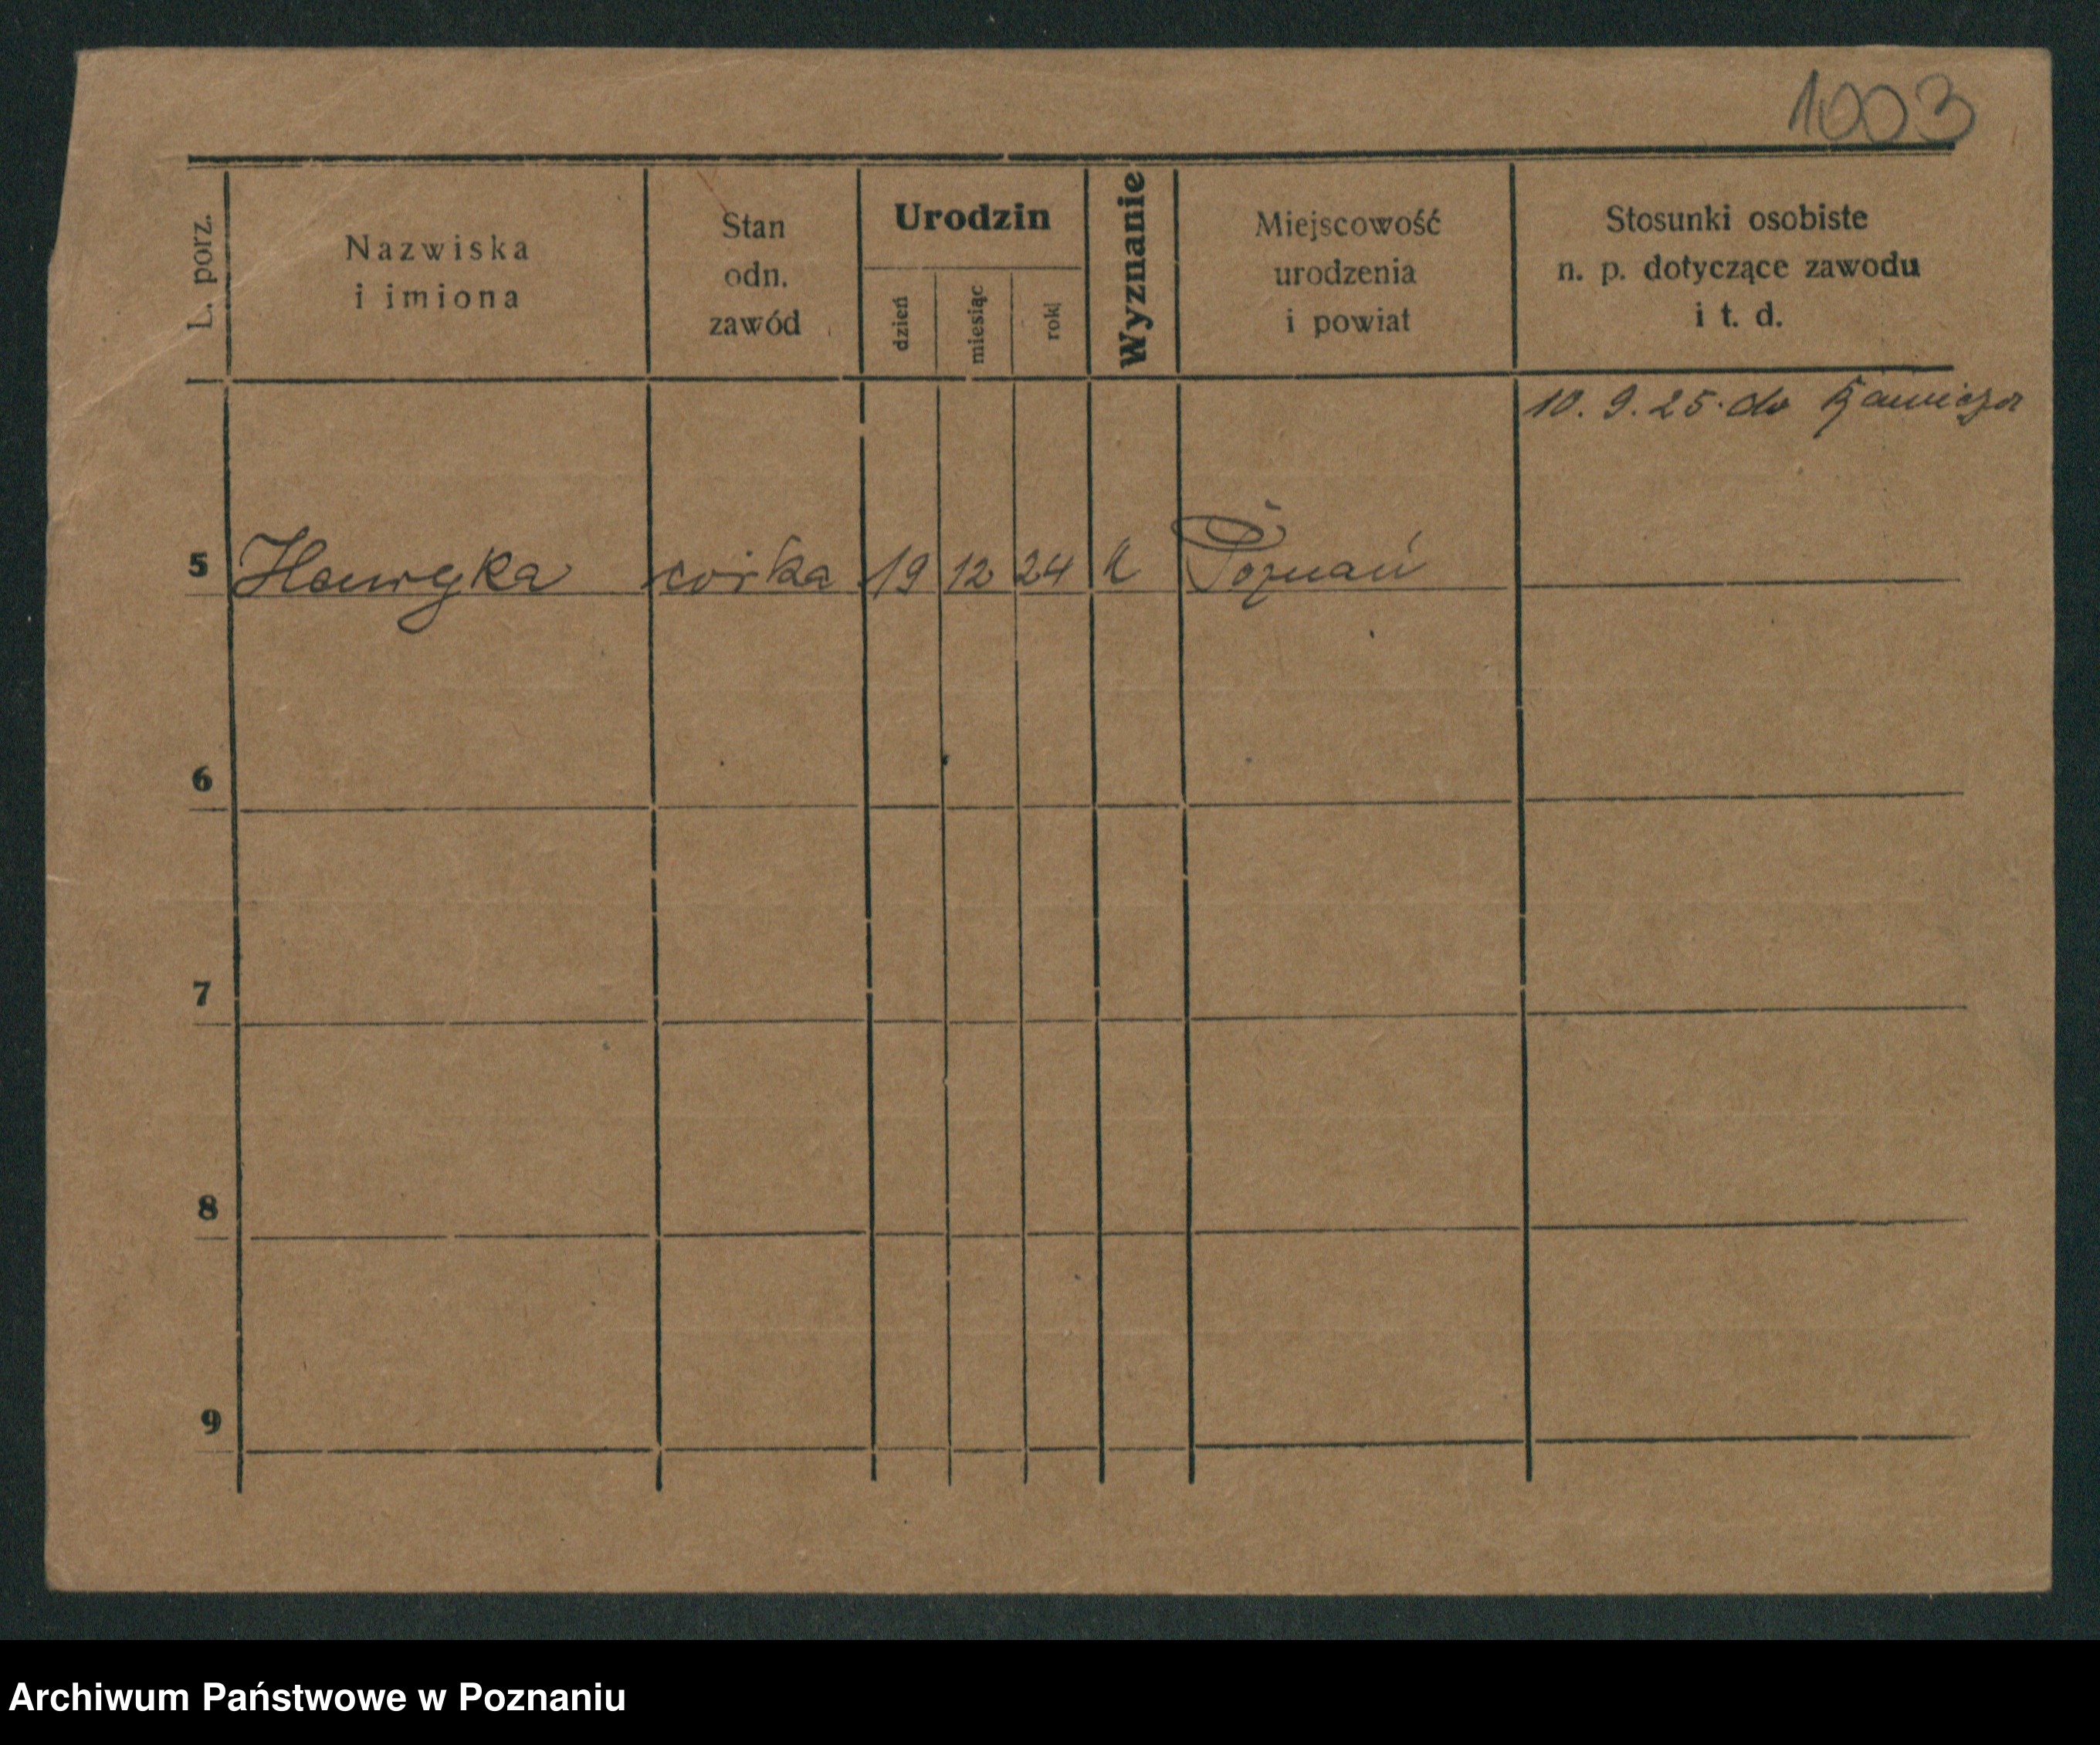 1003
L. porz.
Nazwiska
i imiona
Stan
odn.
zawód
Urodzin
dzień
miesiąc
rok
Wyznanie
Miejscowość
urodzenia
i powiat
Stosunki osobiste
n. p. dotyczące zawodu
i t. d.
10. 9. 25. do
5 córka 19 12 24 k Poznań
6
7
8
9
Archiwum Państwowe w Poznaniu